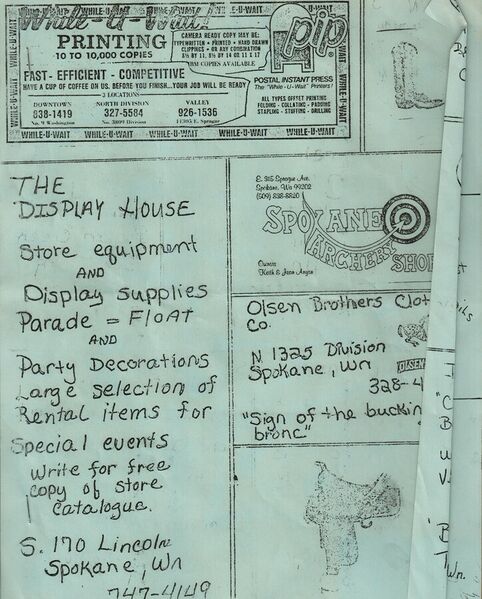 While-U-Wait!
WHILE-U-WAIT
PRINTING
10 TO 10,000 COPIES
CAMERA READY COPY MAY BE:
TYPEWRITTEN • PRINTED • HAND DRAWN
CLIPPINGS • OR ANY COMBINATION
8½ BY 11, 8½ BY 14 OR 11 X 17
IBM COPIES AVAILABLE
pip
FAST - EFFICIENT - COMPETITIVE
HAVE A CUP OF COFFEE ON US. BEFORE YOU FINISH..YOUR JOB WILL BE READY
3 LOCATIONS
DOWNTOWN
838-1419
No. 9 Washington
NORTH DIVISION
327-5584
No. 3809 Division
VALLEY
926-1536
11305 E. Sprague
POSTAL INSTANT PRESS
The "While-U-Wait" Printers!
ALL TYPES OFFSET PRINTING
FOLDING - COLLATING - PADDING
STAPLING - STUFFING - DRILLING
WHILE-U-WAIT WHILE-U-WAIT WHILE-U-WAIT WHILE-U-WAIT
THE
DISPLAY HOUSE
Store equipment
AND
Display supplies
Parade = FLOAT
AND
Party Decorations
Large selection of
Rental items for
Special events
Write for free
copy of store
catalogue.
S. 170 Lincoln
Spokane, Wn
747-4149
E. 315 Sprague Ave.
Spokane, Wa 99202
(509) 838-8820
SPOKANE
ARCHERY
SHOP
Owners
Keith & Jean
Olsen Brothers Clot
Co.
N 1325 Division
Spokane, Wn
OLSEN
328-4
"Sign of the buckin
bronc"
Wn.